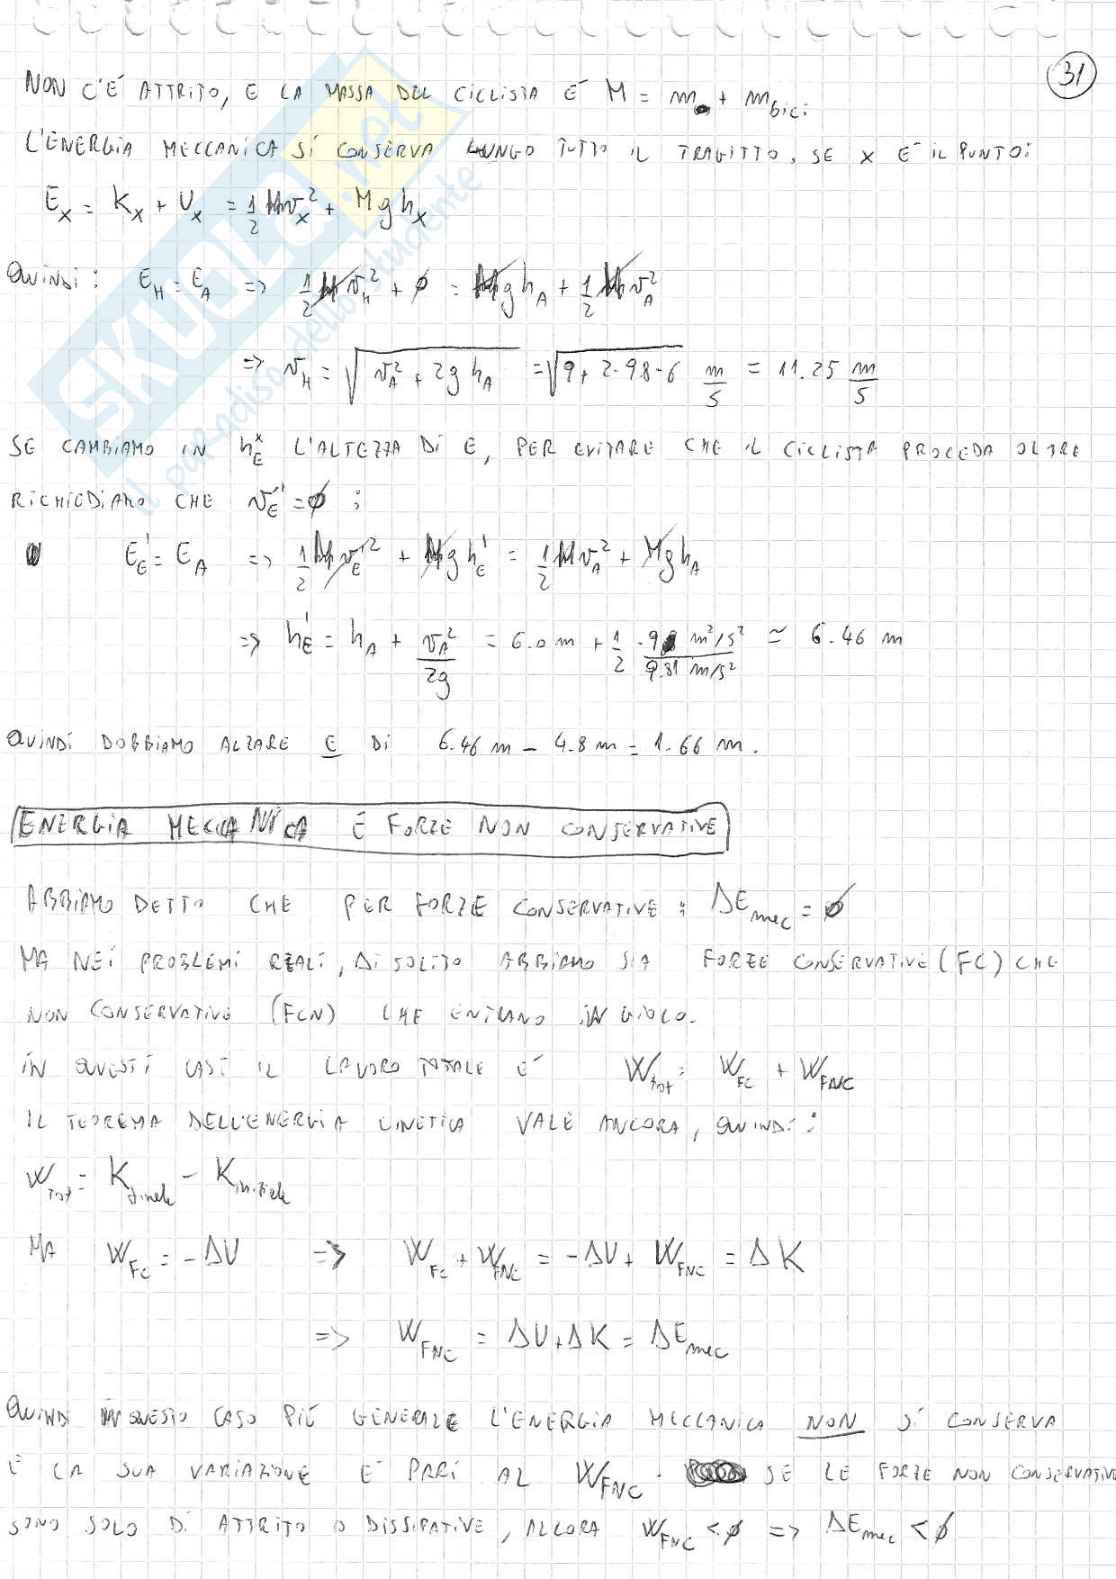 31
NON C'È ATTRITO, E LA MASSA DEL CICLISTA È M = m + m_bici.
L'ENERGIA MECCANICA SI CONSERVA LUNGO TUTTO IL TRAGITTO. SE X È IL PUNTO:
E_x = K_x + U_x = 1/2 M v_x² + M g h_x
QUINDI: E_H = E_A => 1/2 M v_H² + ø = M g h_A + 1/2 M v_A²
=> v_H = √(v_A² + 2g h_A) = √(9 + 2·9.8·6) m/s = 11.25 m/s
SE CAMBIAMO IN h_E^x L'ALTEZZA DI E, PER EVITARE CHE IL CICLISTA PROCEDA OLTRE
RICHIEDIAMO CHE v_E' = ø :
E_E' = E_A => 1/2 M v_E'² + M g h_E' = 1/2 M v_A² + M g h_A
=> h_E' = h_A + v_A²/2g = 6.0 m + 1/2 · 9 m²/s² / 9.81 m/s² ≃ 6.46 m
QUINDI DOBBIAMO ALZARE E DI 6.46 m - 4.8 m = 1.66 m.
ENERGIA MECCANICA E FORZE NON CONSERVATIVE
ABBIAMO DETTO CHE PER FORZE CONSERVATIVE : ΔE_mec = ø
MA NEI PROBLEMI REALI, DI SOLITO ABBIAMO SIA FORZE CONSERVATIVE (FC) CHE
NON CONSERVATIVE (FCN) CHE ENTRANO IN GIOCO.
IN QUESTI CASI IL LAVORO TOTALE È W_tot = W_FC + W_FNC
IL TEOREMA DELL'ENERGIA CINETICA VALE ANCORA, QUINDI :
W_TOT = K_finale - K_iniziale
MA W_FC = -ΔU => W_FC + W_FNC = -ΔU + W_FNC = ΔK
=> W_FNC = ΔU + ΔK = ΔE_mec
QUINDI IN QUESTO CASO PIÙ GENERALE L'ENERGIA MECCANICA NON SI CONSERVA
E LA SUA VARIAZIONE È PARI AL W_FNC. SE LE FORZE NON CONSERVATIVE
SONO SOLO DI ATTRITO O DISSIPATIVE, ALLORA W_FNC < ø => ΔE_mec < ø
SKUOLA.net
il paradiso dello studente